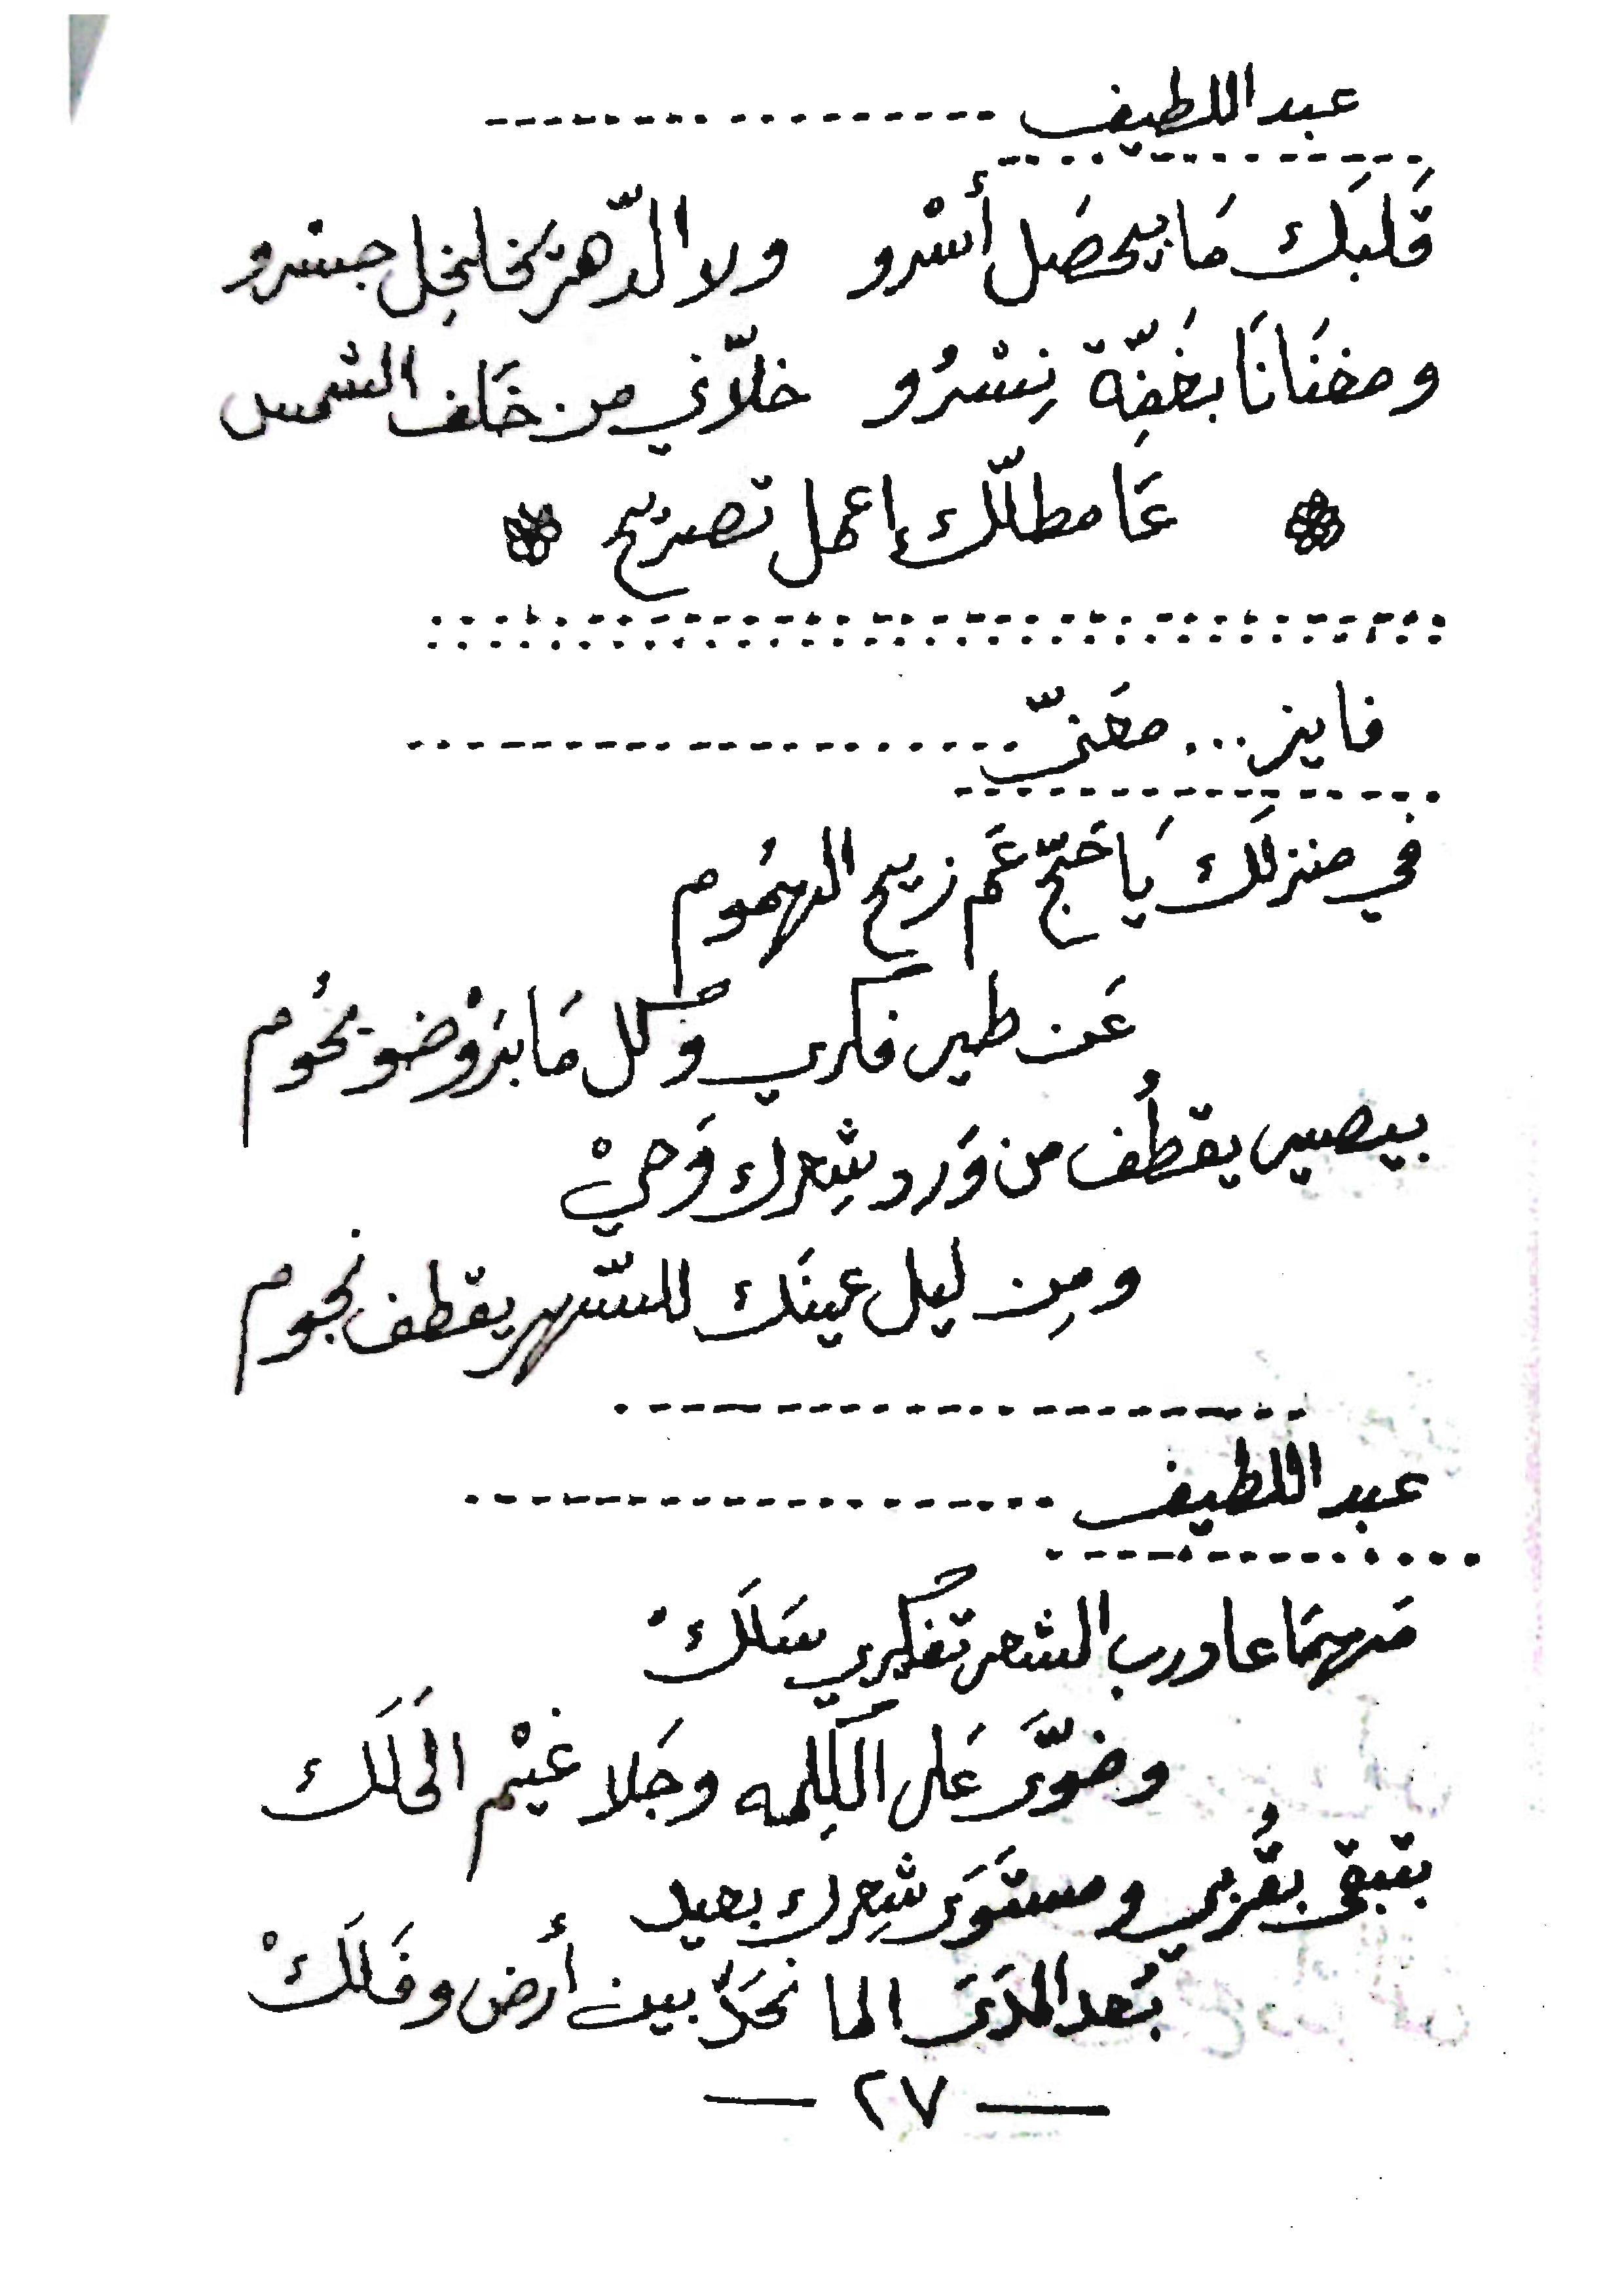 عبد اللطيف
قَلبَك مَا بيحصَل أسْرو ولا الدّهر بخلخِل جسْرو
ومغنَانَا بخَفِّة نِسْرُو خلّاني من خَلف الشمس
عَا مطلّك إعمل تصريح
فايز... معَنّى
في منزلَك يَا حَجّ عَم زيح الهمُوم
عَن طير فكري وْكل مَا بروْضو يحُوم
بيصير يقطُف من وَرد شِعرك وَحيْ
ومِن ليل عينَك للسّهر يقطف نجوم
عبد اللطيف
مَهمَا عا درب الشعر تفكيري سَلَكْ
وضوَّى عَلى الكِلمه وجَلا غيْم الحَلَك
بتبقى بقُربي ومستَوَى شِعرك بعيد
بُعد المَدَى الما نحَدّ بين أرض وفَلَكْ
— ٢٧ —